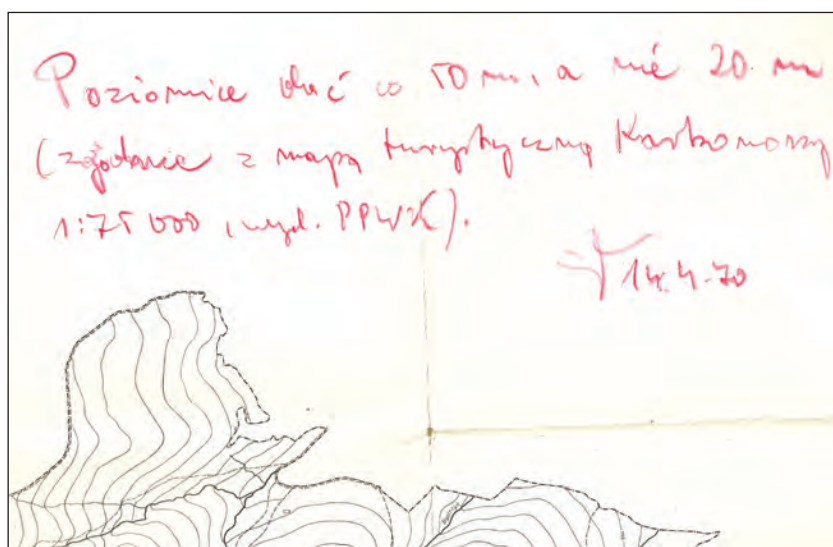 Poziomice dać co 50 m, a nie 20 m
(zgodnie z mapą turystyczną Karkonoszy
1:75 000, wyd. PPWK).
14.4.70